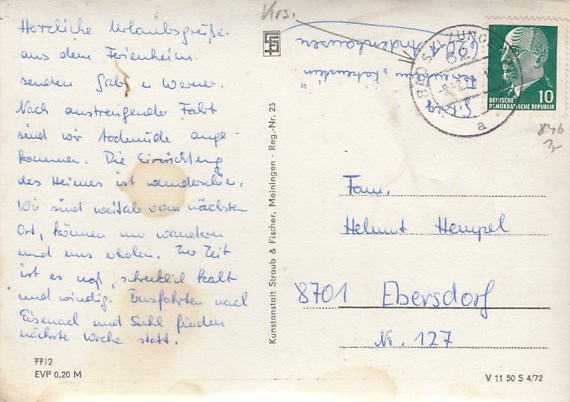 Herzliche Urlaubsgrüße
aus dem Ferienheim
senden Gabi u Werner.
Nach anstrengender Fahrt
sind wir todmüde ange-
kommen. Die Einrichtung
des Heimes ist wunderschön.
Wir sind weitab vom nächsten
Ort, können nur wandern
und uns erholen. Zur Zeit
ist es naß, schrecklich kalt
und windig. Busfahrten nach
Eisenach und Suhl finden
nächste Woche statt.
7712
EVP 0,20 M
Kunstanstalt Straub & Fischer, Meiningen · Reg.-Nr. 23
Ferienheim "Katzenstein"
Andenhausen
BAD SALZUNGEN
62
a
DEUTSCHE
DEMOKRATISCHE REPUBLIK
10
Fam.
Helmut Hempel
8701 Ebersdorf
Nr. 127
V 11 50 S 4/72